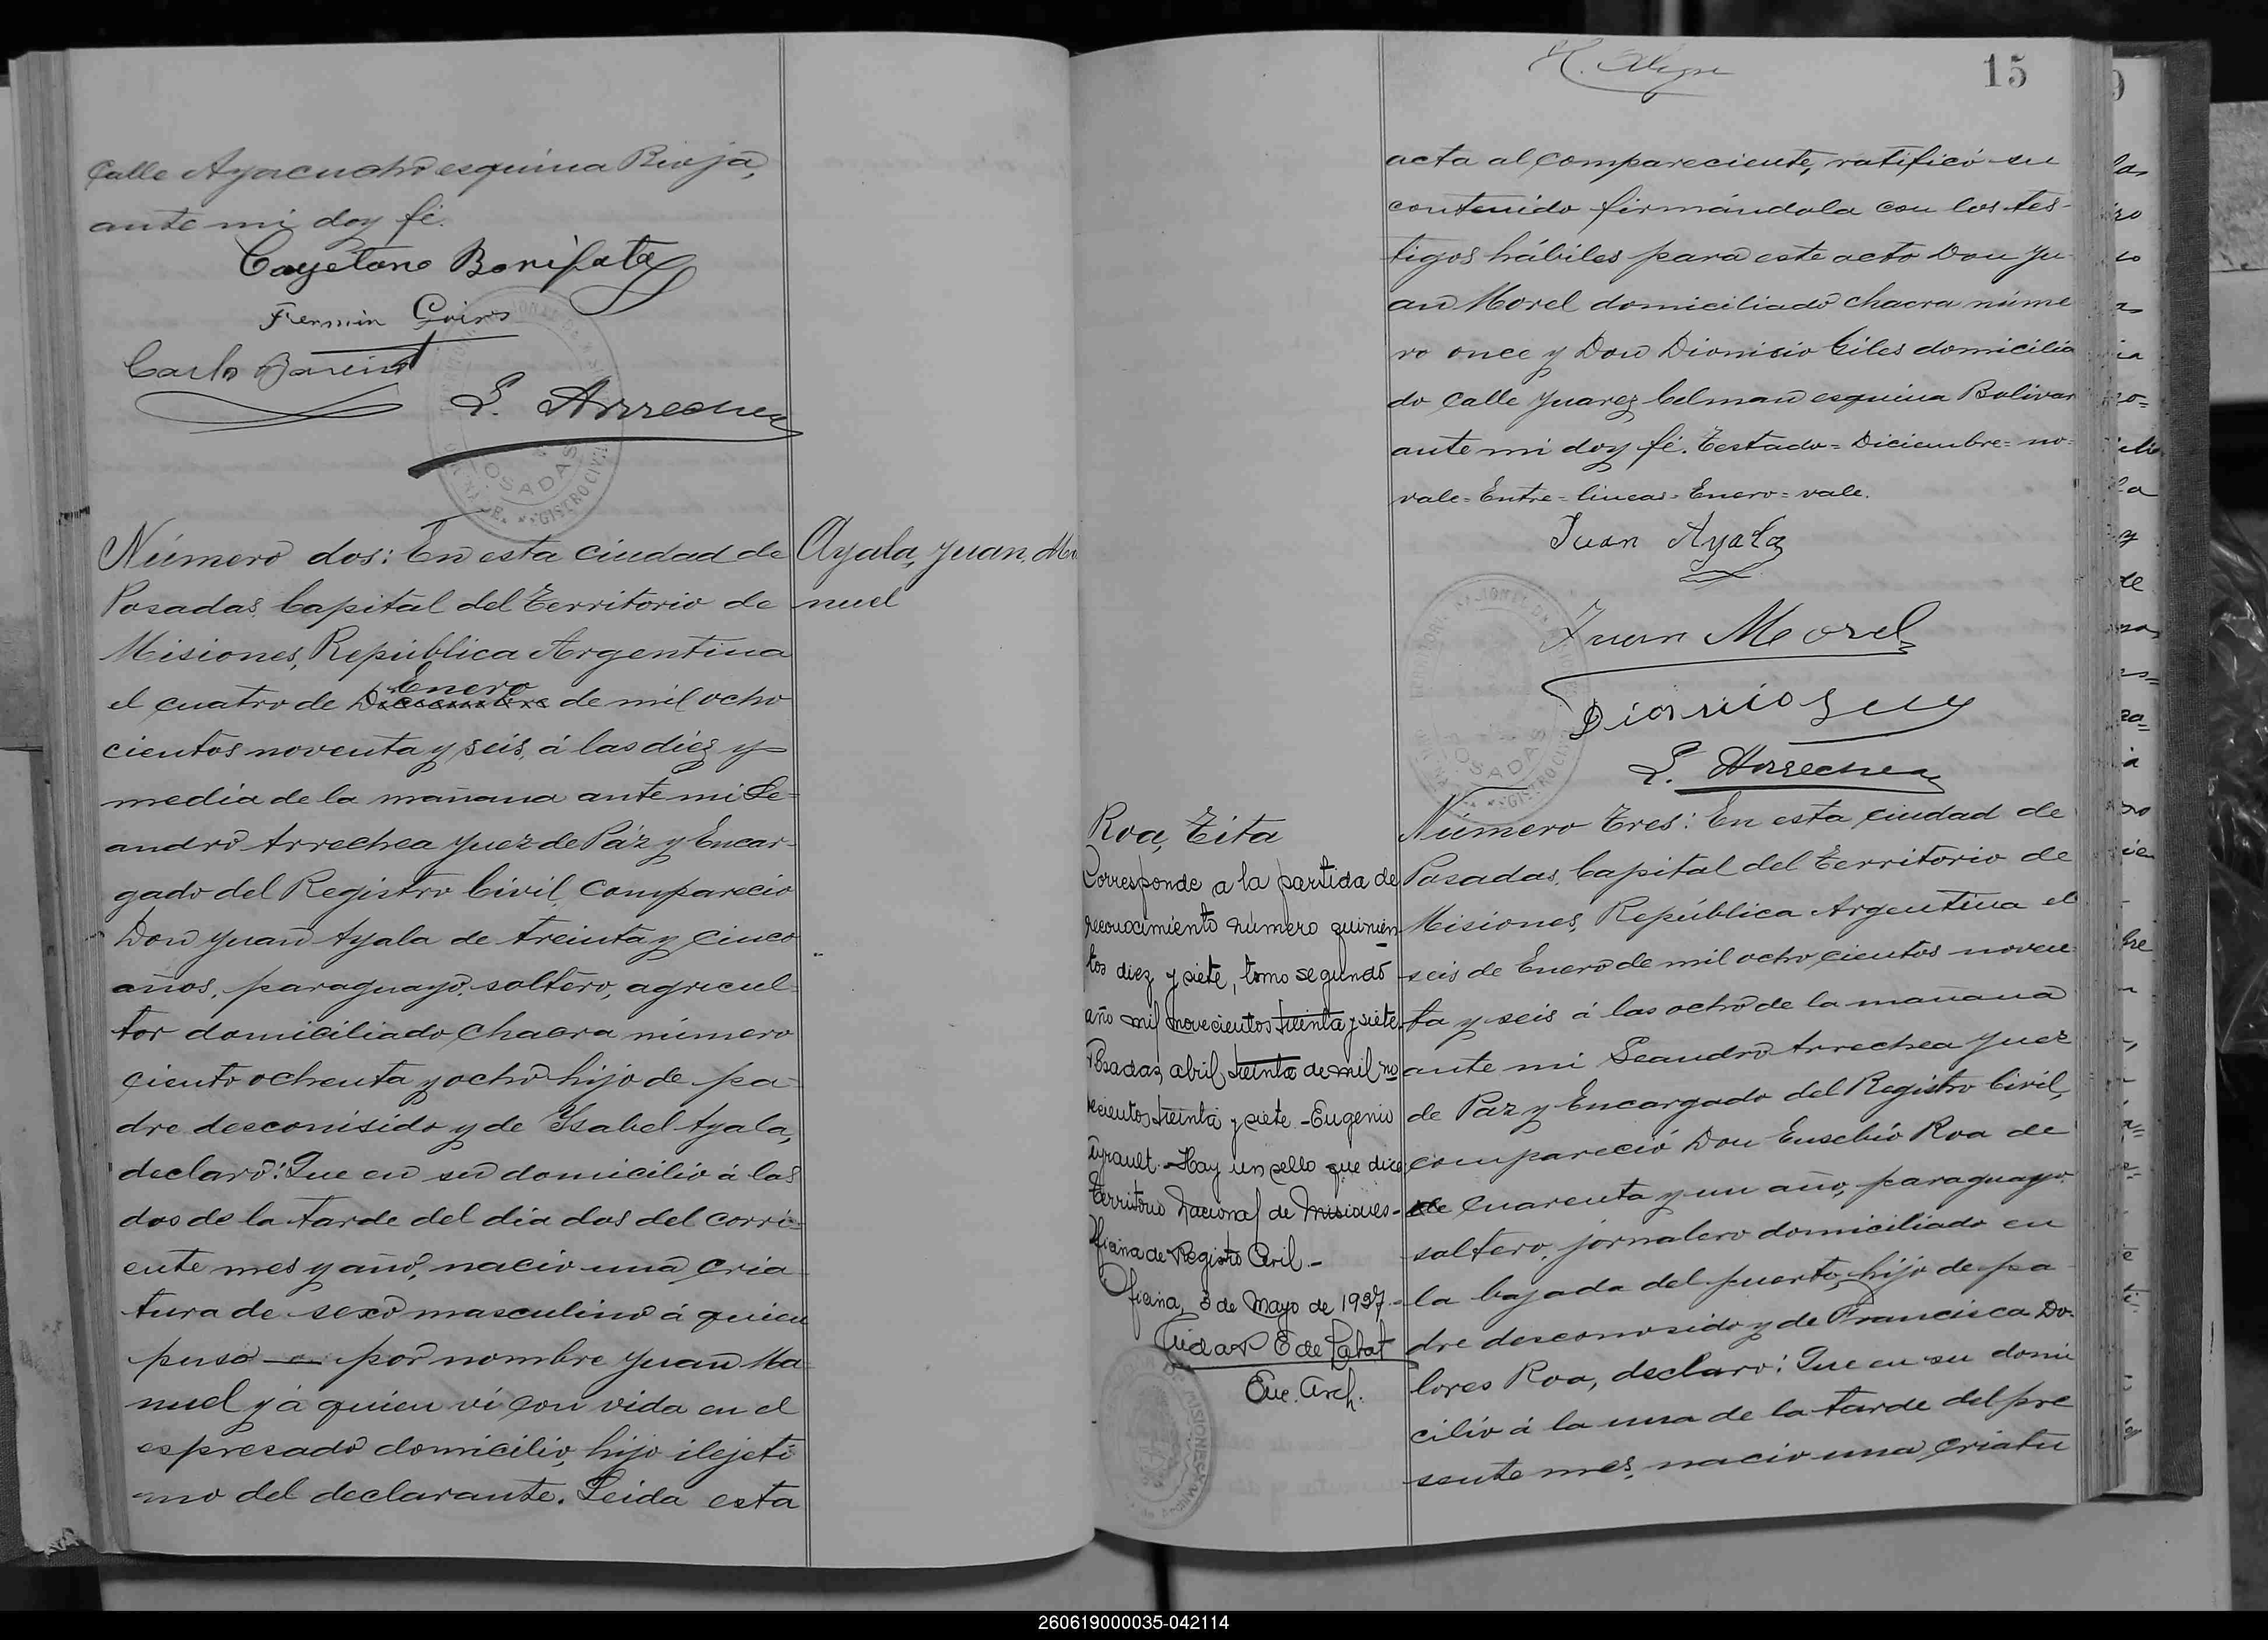 Calle Ayacucho esquina Rioja,
ante mi doy fé.
Cayetano Bonifato
Fermin
Carlo
L. Arrechea
POSADAS
REGISTRO CIVIL
Número dos: En esta ciudad de
Posadas, Capital del Territorio de
Misiones, República Argentina
Enero
el cuatro de Diciembre de mil ocho
cientos noventa y seis, á las diez y
media de la mañana ante mi Le=
andro Arrechea Juez de Páz y Encar-
gado del Registro Civil, compareció
Don Juan Ayala de treinta y cinco
años, paraguayo, soltero, agricul=
tor domiciliado Chacra número
ciento ochenta y ocho hijo de pa-
dre desconisido y de Ysabel Ayala,
declaró: Que en su domicilio á las
dos de la tarde del dia dos del corri-
ente mes y año, nació una cria-
tura de sexo masculino á quien
puso por nombre Juan Ma-
nuel y á quien ví con vida en el
espresado domicilio, hijo ilejeti
mo del declarante. Leida esta
Ayala, Juan, Ma
nuel
15
acta al compareciente, ratificó su
contenido firmándola con los tes-
tigos hábiles para este acto Don Ju-
an Morel domiciliado chacra núme
ro once y Don Dionisio Giles domicilia
do Calle Juarez Celman esquina Bolivar
ante mi doy fé. Testado= Diciembre= no=
vale= Entre= lineas= Enero= vale.
Juan Ayala
Juan Morel
Dionicio
L. Arrechea
POSADAS
Roa, Tita
Corresponde a la partida de
reconocimiento número quinien
tos diez y siete, tomo segundo
año mil novecientos treinta y siete
Posadas, abril treinta de mil no
vecientos treinta y siete - Eugenio
Ayrault. - Hay un sello que dice
Territorio Nacional de Misiones -
Oficina de Registro Civil. -
Oficina, 3 de Mayo de 1937. -
Enc. Arch.
Número Tres: En esta ciudad de
Posadas, Capital del Territorio de
Misiones, República Argentina el
seis de Enero de mil ocho cientos noven=
ta y seis á las ocho de la mañana
ante mi Leandro Arrechea Juez
de Paz y Encargado del Registro Civil,
compareció Don Eusebio Roa de
de cuarenta y un año, paraguayo
soltero, jornalero domiciliado en
la bajada del puerto, hijo de pa-
dre desconosido y de Francisca Do-
lores Roa, declaró: Que en su domi
cilio á la una de la tarde del pre
sente mes, nació una criatu
260619000035-042114